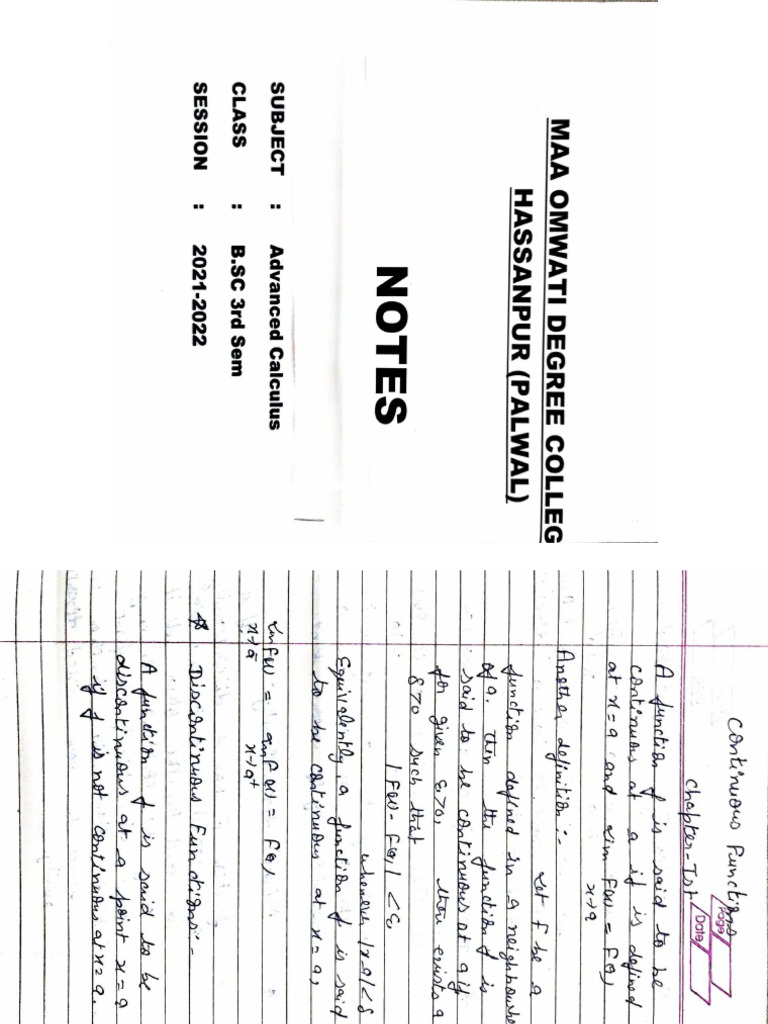 MAA OMWATI DEGREE COLLEG
HASSANPUR (PALWAL)
NOTES
SUBJECT : Advanced Calculus
CLASS : B.SC 3rd Sem
SESSION : 2021-2022
Page
Date
Continuous Functions
Chapter-Ist
A function f is said to be
continuous at a if is defined
at x=a and Lim f(x) = f(a)
x→a
Another definition:-
Let f be a
function defined in a neighbourho
of a. Then the function f is
said to be continuous at a if
for given ε>0, there exists a
δ>0 such that
|f(x)-f(a)|<ε
whenever |x-a|<δ
Equivalently, a function f is said
to be continuous at x=a,
Lim f(x) = Lim f(x) = f(a)
x→a⁻ x→a⁺
Discontinuous Functions:-
A function f is said to be
discontinuous at a point x=a
if f is not continuous at x=a.